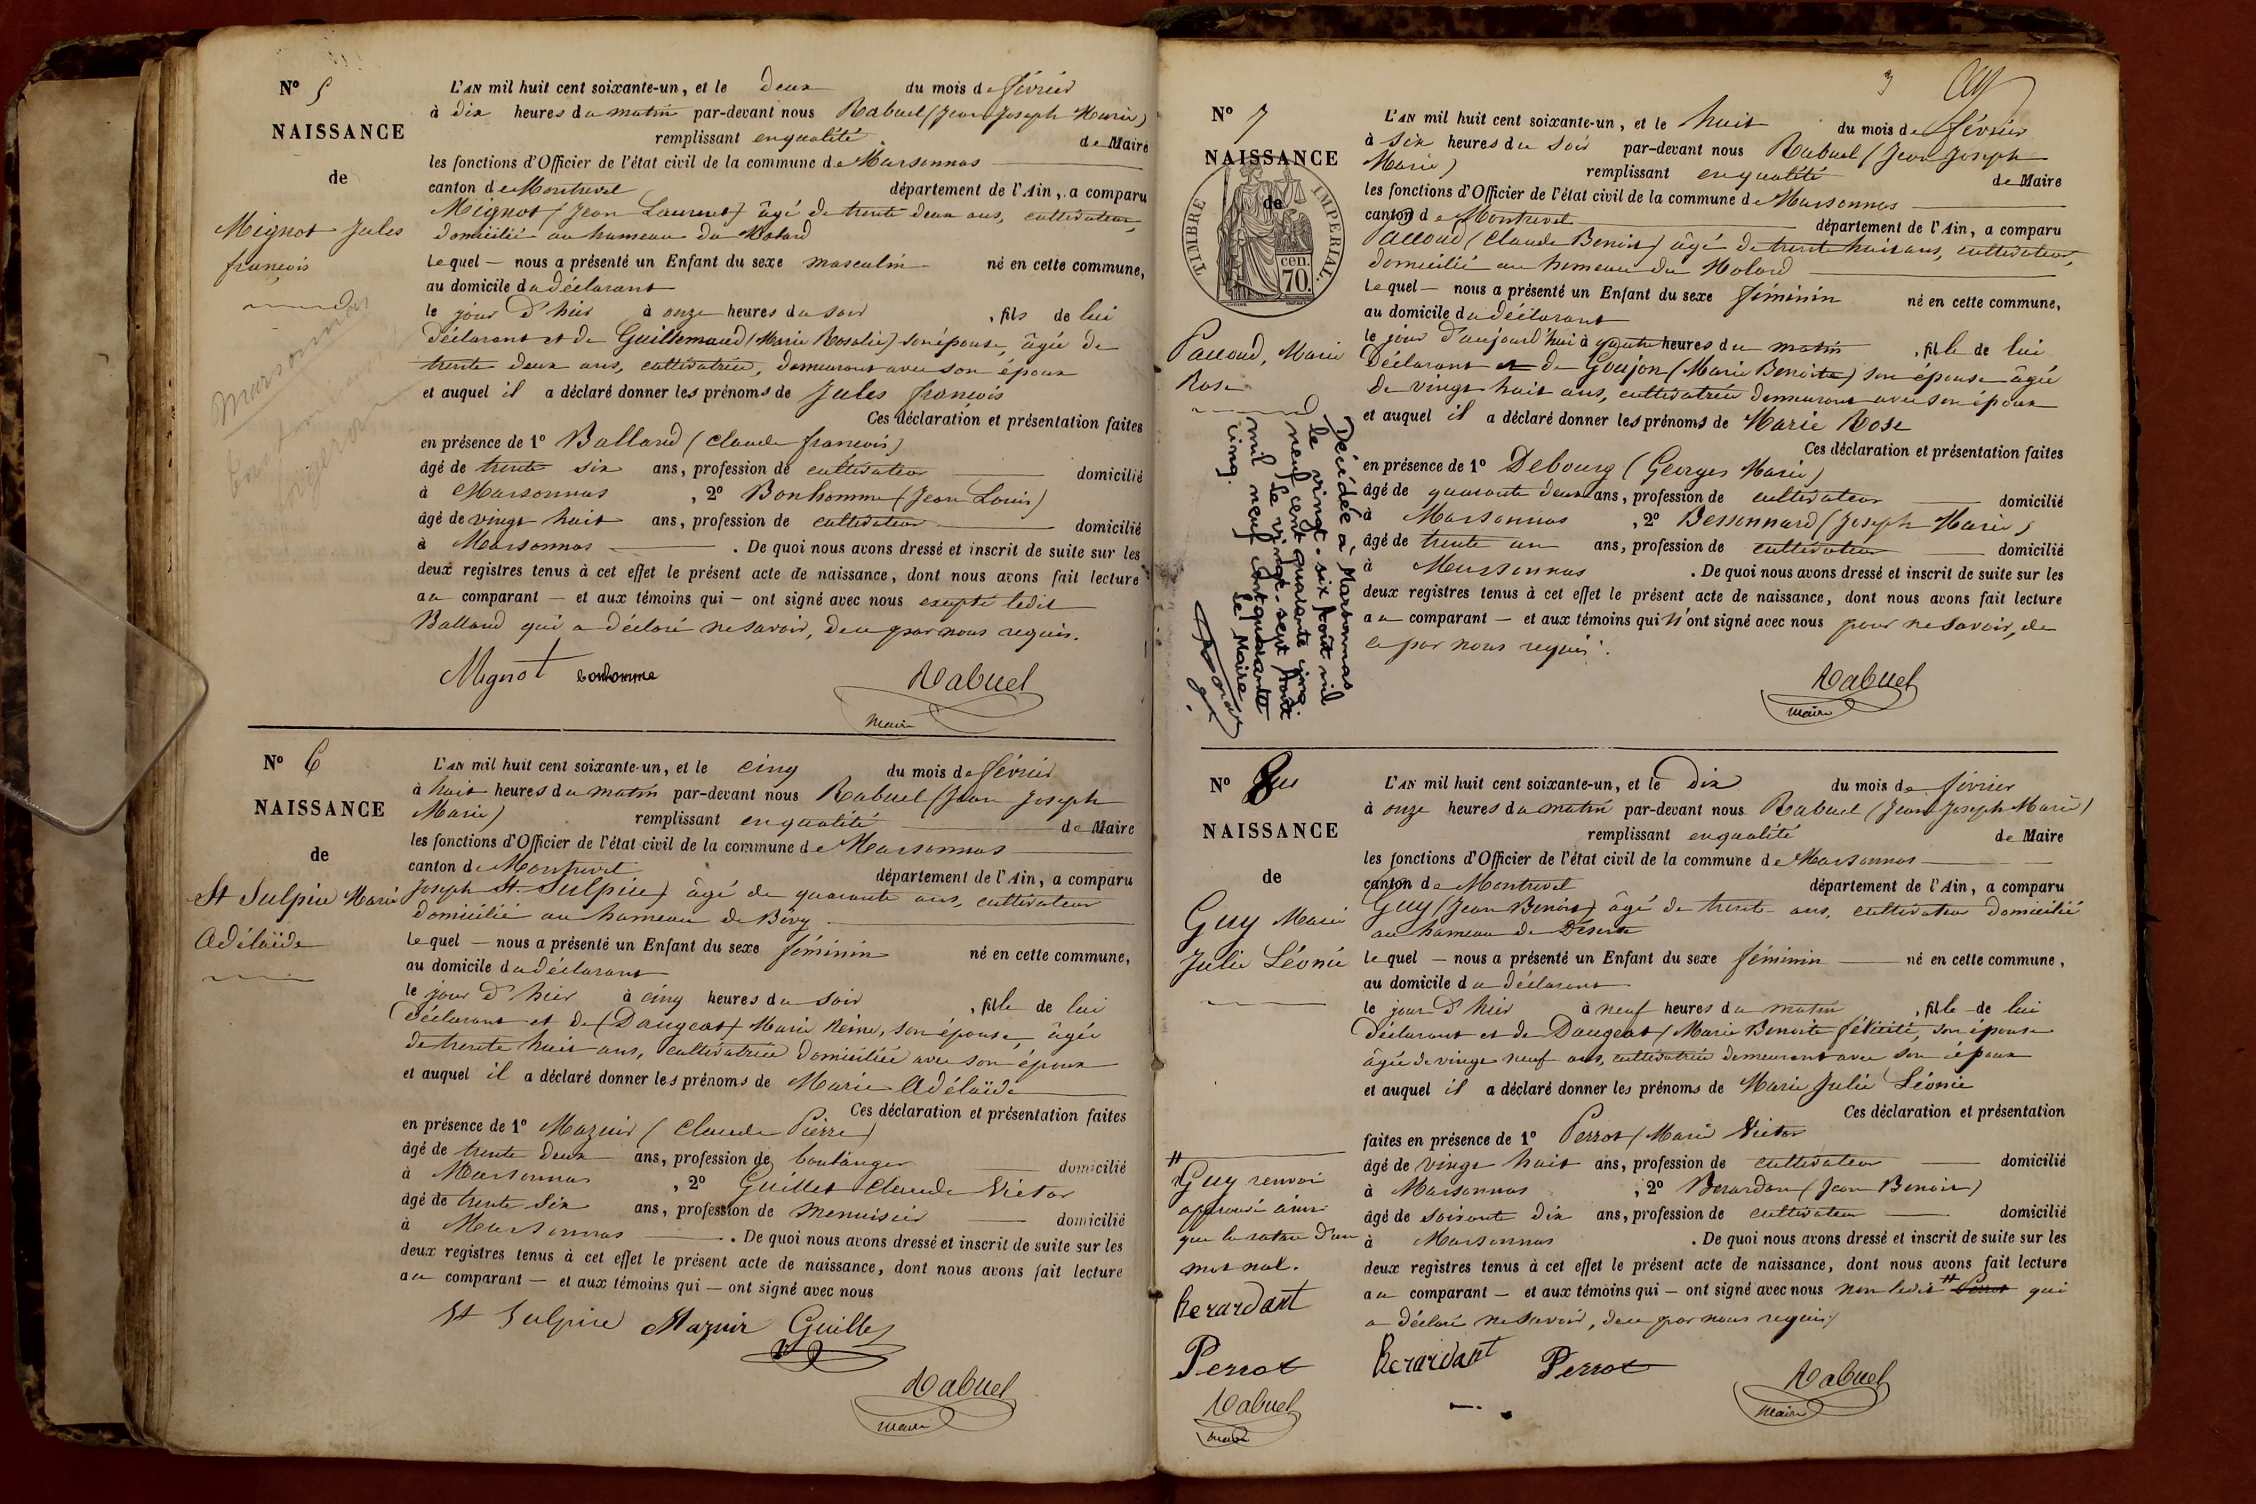 N° 5
NAISSANCE
de
Mignot Jules
françois
Marsonnas
L'AN mil huit cent soixante-un, et le deux du mois de février
à dix heures du matin par-devant nous Rabuel (Jean Joseph Marie)
remplissant en qualité de Maire
les fonctions d'Officier de l'état civil de la commune de Marsonnas
canton de Montrevel département de l'Ain, a comparu
Mignot (Jean Laurent) âgé de trente deux ans, cultivateur,
domicilié au hameau du Molard
Lequel — nous a présenté un Enfant du sexe masculin né en cette commune,
au domicile du déclarant
le jour d'hier à onze heures du soir, fils de lui
déclarant et de Guillemaud (Marie Rosalie) son épouse, âgée de
trente deux ans, cultivatrice, demeurant avec son époux
et auquel il a déclaré donner les prénoms de Jules françois
Ces déclaration et présentation faites
en présence de 1° Balland (Claude françois)
âgé de trente six ans, profession de cultivateur domicilié
à Marsonnas, 2° Bonhomme (Jean Louis)
âgé de vingt huit ans, profession de cultivateur domicilié
à Marsonnas. De quoi nous avons dressé et inscrit de suite sur les
deux registres tenus à cet effet le présent acte de naissance, dont nous avons fait lecture
au comparant — et aux témoins qui — ont signé avec nous excepté ledit
Balland qui a déclaré ne savoir, de ce par nous requis.
Mignot bonhomme Rabuel
maire
N° 6
NAISSANCE
de
St Sulpice Marie
Adélaïde
L'AN mil huit cent soixante-un, et le cinq du mois de février
à huit heures du matin par-devant nous Rabuel (Jean Joseph
Marie) remplissant en qualité de Maire
les fonctions d'Officier de l'état civil de la commune de Marsonnas
canton de Montrevel département de l'Ain, a comparu
Joseph St Sulpice) âgé de quarante ans, cultivateur
domicilié au hameau de Bévy
Lequel — nous a présenté un Enfant du sexe féminin né en cette commune,
au domicile du déclarant
le jour d'hier à cinq heures du soir, fille de lui
déclarant et de (Daugeat) Marie Reine, son épouse, âgée
de trente huit ans, cultivatrice domiciliée avec son époux
et auquel il a déclaré donner les prénoms de Marie Adélaïde
Ces déclaration et présentation faites
en présence de 1° Mazuir (Claude Pierre)
âgé de trente deux ans, profession de boulanger domicilié
à Marsonnas, 2° Guillet Claude Victor
âgé de trente six ans, profession de menuisier domicilié
à Marsonnas. De quoi nous avons dressé et inscrit de suite sur les
deux registres tenus à cet effet le présent acte de naissance, dont nous avons fait lecture
au comparant — et aux témoins qui — ont signé avec nous
St Sulpice Mazuir Guillet
Rabuel
maire
3
N° 7
NAISSANCE
de
TIMBRE IMPERIAL
70 cen.
Pacoud, Marie
Rose
Décédée à Marsonnas
le vingt-six août mil
neuf cent quarante cinq.
le vingt-sept août
mil neuf cent quarante
cinq. Le Maire
L'AN mil huit cent soixante-un, et le huit du mois de février
à six heures du soir par-devant nous Rabuel (Jean Joseph
Marie) remplissant en qualité de Maire
les fonctions d'Officier de l'état civil de la commune de Marsonnas
canton de Montrevel département de l'Ain, a comparu
Pacoud (Claude Benoit) âgé de trente huit ans, cultivateur,
domicilié au hameau du Molard
Lequel — nous a présenté un Enfant du sexe féminin né en cette commune,
au domicile du déclarant
le jour d'aujourd'hui à quatre heures du matin, fille de lui
déclarant et de Goujon (Marie Benoite) son épouse âgée
de vingt huit ans, cultivatrice demeurant avec son époux
et auquel il a déclaré donner les prénoms de Marie Rose
Ces déclaration et présentation faites
en présence de 1° Debourg (Georges Marie)
âgé de quarante deux ans, profession de cultivateur domicilié
à Marsonnas, 2° Bessonnard (Joseph Marie)
âgé de trente un ans, profession de cultivateur domicilié
à Marsonnas. De quoi nous avons dressé et inscrit de suite sur les
deux registres tenus à cet effet le présent acte de naissance, dont nous avons fait lecture
au comparant — et aux témoins qui n'ont signé avec nous pour ne savoir, de
ce par nous requis.
Rabuel
maire
N° 8
NAISSANCE
de
Guy Marie
Julie Léonie
L'AN mil huit cent soixante-un, et le dix du mois de février
à onze heures du matin par-devant nous Rabuel (Jean Joseph Marie)
remplissant en qualité de Maire
les fonctions d'Officier de l'état civil de la commune de Marsonnas
canton de Montrevel département de l'Ain, a comparu
Guy (Jean Benoit) âgé de trente ans, cultivateur domicilié
au hameau de Déserte
Lequel — nous a présenté un Enfant du sexe féminin né en cette commune,
au domicile du déclarant
le jour d'hier à neuf heures du matin, fille de lui
déclarant et de Daugeat (Marie Benoite félicité, son épouse
âgée de vingt neuf ans, cultivatrice demeurant avec son époux
et auquel il a déclaré donner les prénoms de Marie Julie Léonie
Ces déclaration et présentation
faites en présence de 1° Perrot (Marie Victor
âgé de vingt huit ans, profession de cultivateur domicilié
à Marsonnas, 2° Berardan (Jean Benoit)
âgé de soixante dix ans, profession de cultivateur domicilié
à Marsonnas. De quoi nous avons dressé et inscrit de suite sur les
deux registres tenus à cet effet le présent acte de naissance, dont nous avons fait lecture
au comparant — et aux témoins qui — ont signé avec nous non ledit # Perrot qui
a déclaré ne savoir, de ce par nous requis
# Guy renvoi
approuvé ainsi
que la rature d'un
mot nul.
berardant
Perrot
Rabuel
maire
berardant Perrot Rabuel
maire